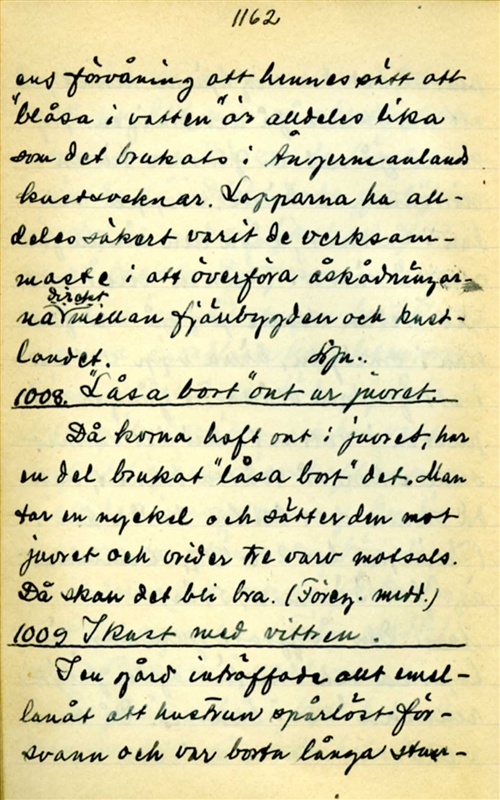 1162
ens förvåning att hennes sätt att
"blåsa i vatten" är alldeles lika
som det brukats i Ångermanlands
kustsocknar. Lapparna ha all-
deles säkert varit de verksam-
maste i att överföra åskådningar-
na direkt mellan fjänbygden och kust-
landet.
1008. "Låsa bort" ont ur juvret.
Då korna haft ont i juvret, har
en del brukat "låsa bort" det. Man
tar en nyckel och sätter den mot
juvret och vrider tre varv motsols.
Då skan det bli bra. (Föreg. medd.)
1009 I kast med vittren.
I en gård inträffade allt emel-
lanåt att hustrun spårlöst för-
svann och var borta långa stun-